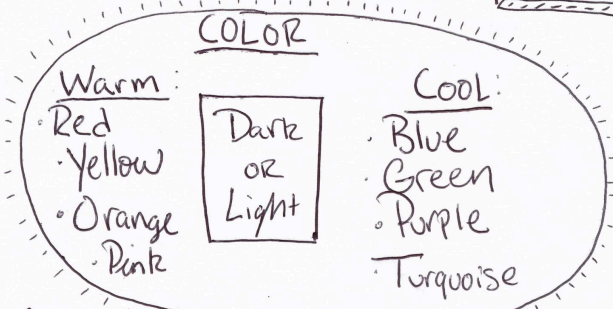 COLOR
Warm:
· Red
· Yellow
· Orange
· Pink
Dark
OR
Light
Cool:
· Blue
· Green
· Purple
· Turquoise